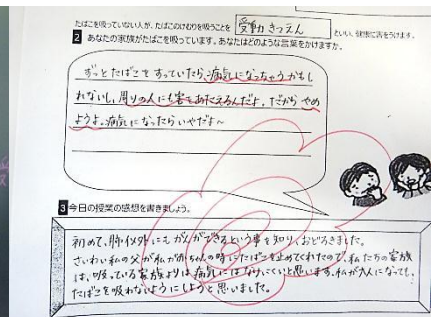 たばこを吸っていない人が、たばこのけむりを吸うことを 受動きつえん といい、健康に害をうけます。
2 あなたの家族がたばこを吸っています。あなたはどのような言葉をかけますか。
ずっとたばこをすっていたら、病気になっちゃうかもし
れないし、周りの人にも害をあたえるんだよ。だから やめ
ようよ。病気になったらいやだよ～
3 今日の授業の感想を書きましょう。
初めて、肺以外にもがんができるという事を知り、おどろきました。
さいわい私の父が私が赤ちゃんの時にたばこを止めてくれたので、私たちの家族
は、吸っている家族よりは病気にはなりにくいと思います。私が大人になっても、
たばこを吸わないようにしようと思いました。